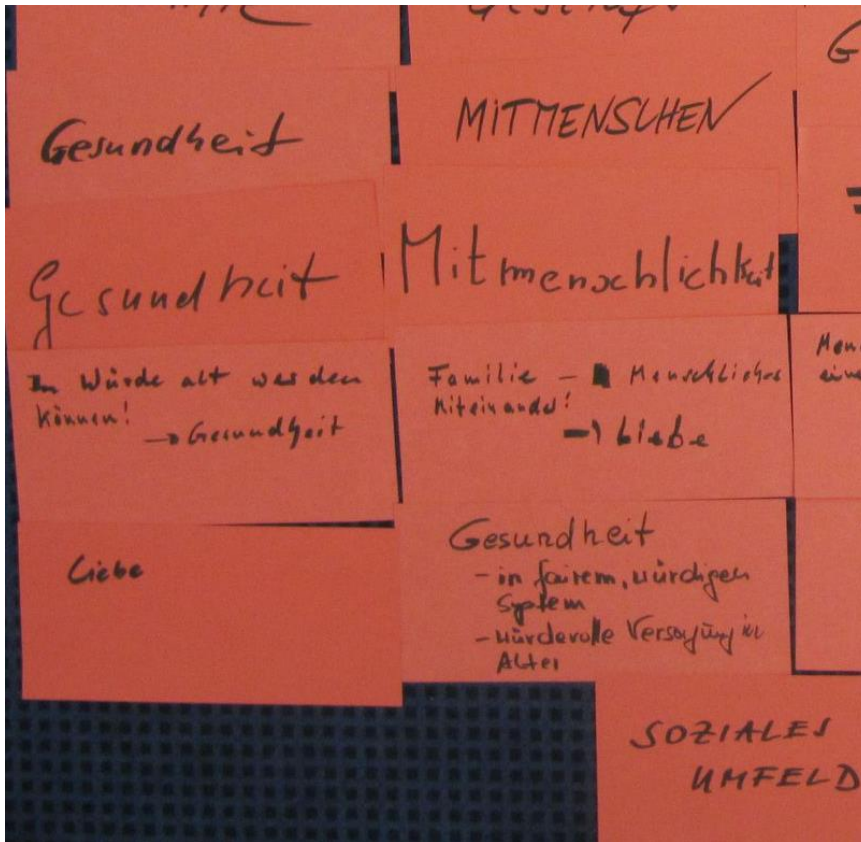 Gesundheit
MITMENSCHEN
Gesundheit
Mitmenschlichkeit
In Würde alt werden
können!
→ Gesundheit
Familie – Menschliches
Miteinander!
→ Liebe
Liebe
Gesundheit
- in fairem, würdigen
System
- würdevolle Versorgung im
Alter
SOZIALES
UMFELD